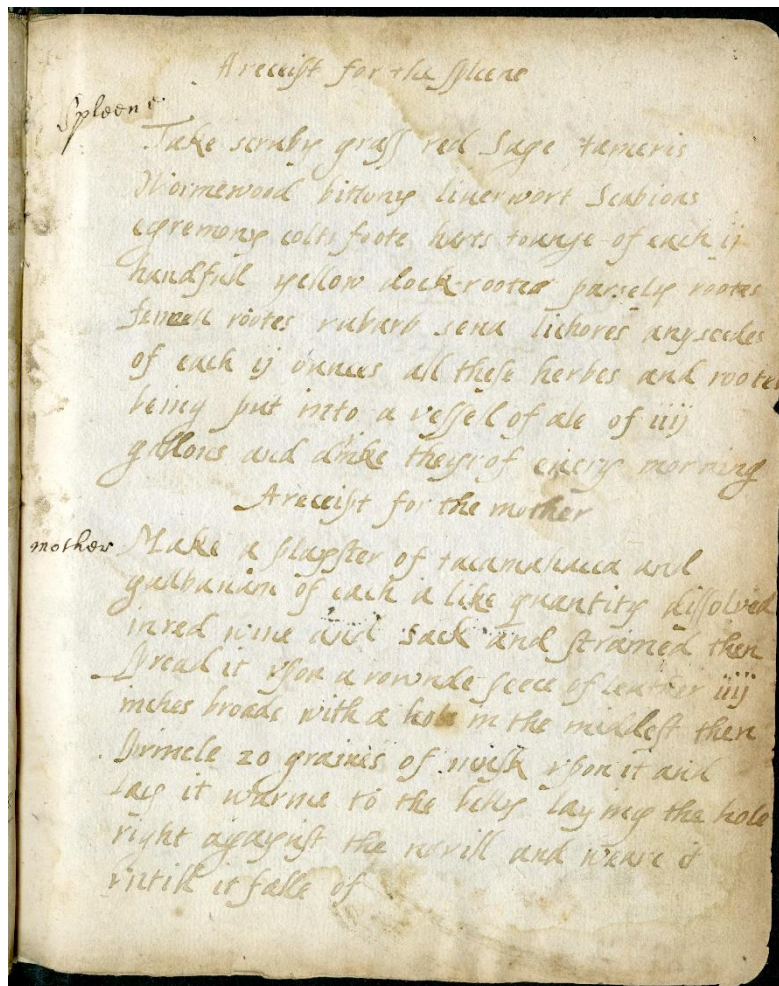 A receipt for the spleene
Spleene
Take scruby grass red Sage tameris
Wormewood bittony liverwort Scabious
egremony colts foote harts tounge of each ij
handfull yellow dock rootes parsely rootes
fennell rootes rubarb sena lichores anyseedes
of each ij ounces all these herbes and rootes
being put into a vessell of ale of iiij
gallons and drinke theyrof every morning
A receipt for the mother
mother
Make a plapster of tacamahacca and
galbanam of each a like quantity dissolved
in red wine and sack and strained then
spread it vpon a rownde peece of leather iiij
inches broade with a hole in the middest then
sprincle 20 graines of musk vpon it and
lay it warme to the belly laying the hole
right agaynst the navill and weare it
vntill it falle of